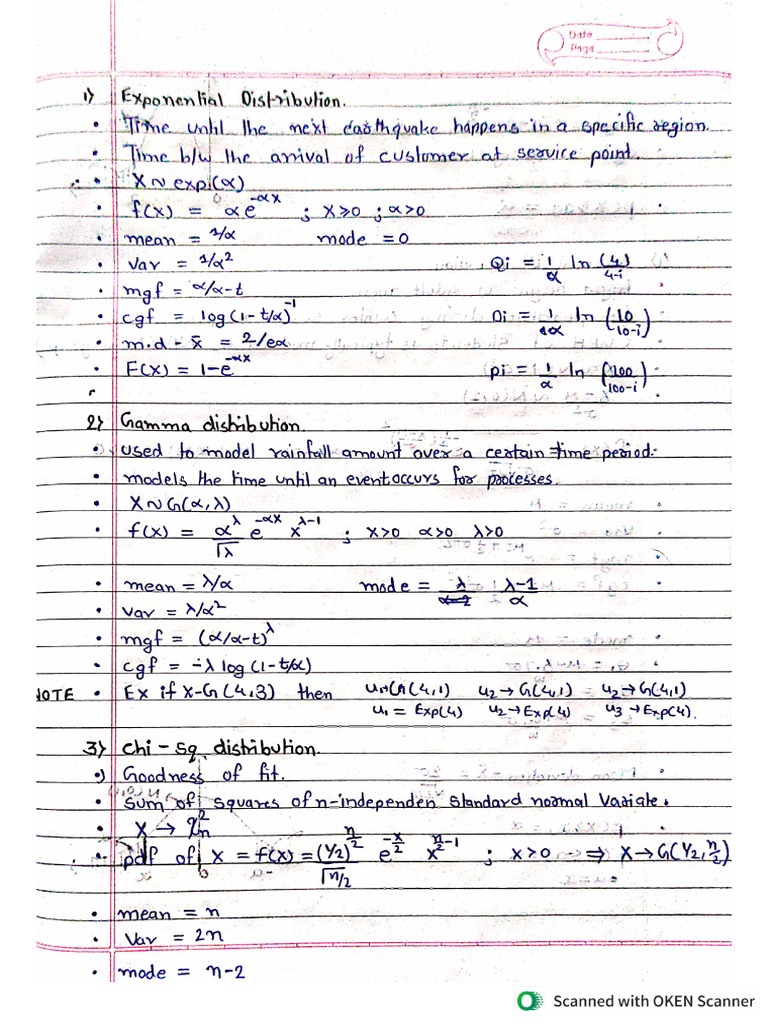 Date
Page
1) Exponential Distribution.
• Time until the next earthquake happens in a specific region.
• Time b/w the arrival of customer at service point.
• X ~ exp(α)
• f(x) = αe^-αx ; x≥0 ; α>0
• mean = 1/α mode = 0
• Var = 1/α² Qi = 1/α ln (4/4-i)
• mgf = α/α-t
• cgf = log(1-t/α)^-1 Di = 1/α ln (10/10-i)
• m.d - x̄ = 2/eα
• F(x) = 1-e^-αx pi = 1/α ln (100/100-i)
2) Gamma distribution.
• used to model rainfall amount over a certain time period.
• models the time until an event occurs for processes.
• X~G(α,λ)
• f(x) = α^λ/Γλ e^-αx x^λ-1 ; x>0 α>0 λ>0
• mean = λ/α mode = λ-1/α
• var = λ/α²
• mgf = (α/α-t)^λ
• cgf = -λ log(1-t/α)
NOTE • Ex if X-G(4,3) then u₁→G(4,1) u₂→G(4,1) u₂→G(4,1)
u₁ = Exp(4) u₂→Exp(4) u₃→Exp(4).
3) chi-sq distribution.
•) Goodness of fit.
• sum of squares of n-independen standard normal Variate.
• X → χ²n
• pdf of X = f(x) = (1/2)^n/2/Γn/2 e^-x/2 x^n/2-1 ; x>0 ⇒ X→G(1/2,n/2)
• mean = n
• Var = 2n
• mode = n-2
Scanned with OKEN Scanner